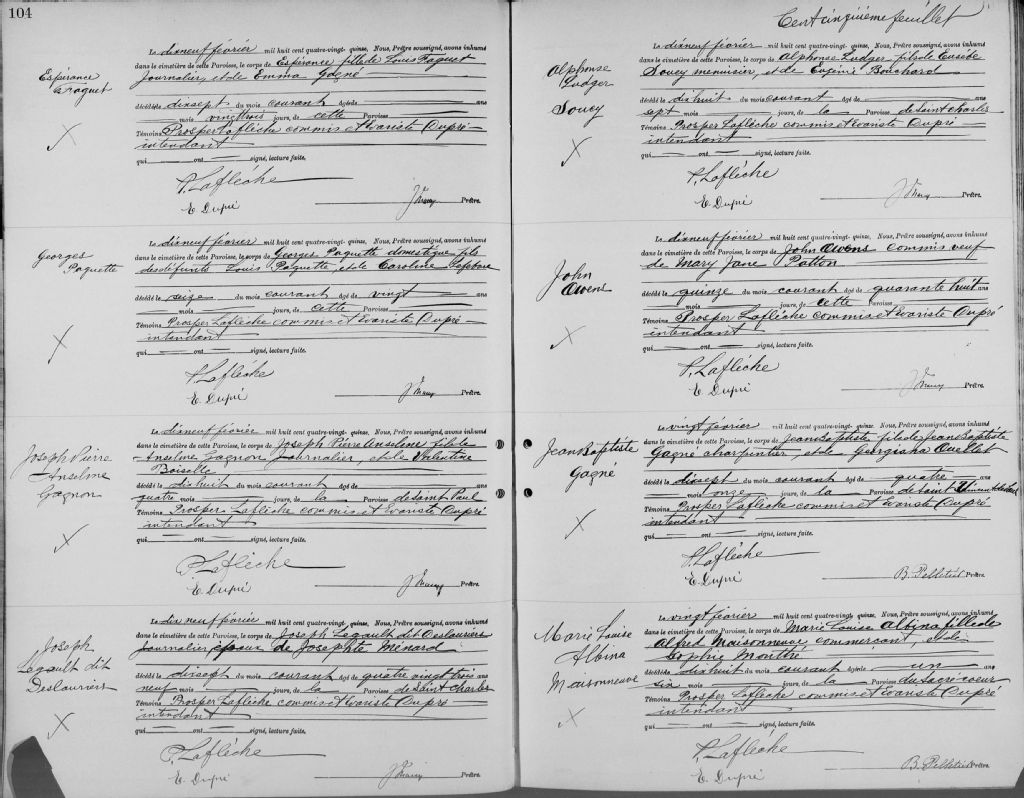 104
Espérance
Le dixneuf février mil huit cent quatre-vingt-quinze, Nous, Prêtre soussigné, avons inhumé
dans le cimetière de cette Paroisse, le corps de Espérance fille de Louis Faguet
Journalier, et de Emma Gagné
décédée dixsept du mois courant âgée de ans
mois vingt trois jours, de cette Paroisse
Témoins Prosper Laflèche commis et Evariste Dupré
intendant
qui ont signé, lecture faite.
P. Laflèche
E. Dupré
Prêtre.
Georges
Paquette
Le dixneuf février mil huit cent quatre-vingt-quinze, Nous, Prêtre soussigné, avons inhumé
dans le cimetière de cette Paroisse, le corps de Georges Paquette domestique fils
des défunts Louis Paquette, et de Caroline Lefebvre
décédé le seize du mois courant âgé de vingt ans
mois jours, de cette Paroisse
Témoins Prosper Laflèche commis et Evariste Dupré
intendant
qui ont signé, lecture faite.
P. Laflèche
E. Dupré
Prêtre.
Joseph Pierre
Anselme
Gagnon
Le dixneuf février mil huit cent quatre-vingt-quinze, Nous, Prêtre soussigné, avons inhumé
dans le cimetière de cette Paroisse, le corps de Joseph Pierre Anselme fils de
Anselme Gagnon Journalier, et de
décédé dixhuit du mois courant âgé de ans
quatre mois jours, de la Paroisse de Saint Paul
Témoins Prosper Laflèche commis et Evariste Dupré
intendant
qui ont signé, lecture faite.
P. Laflèche
E. Dupré
Prêtre.
Joseph
Legault dit
Deslauriers
Le dix neuf février mil huit cent quatre-vingt-quinze, Nous, Prêtre soussigné, avons inhumé
dans le cimetière de cette Paroisse, le corps de Joseph Legault dit Deslauriers
Journalier époux de Josephte Ménard
décédé dixsept du mois courant âgé de quatre vingt trois ans
neuf mois jours, de la Paroisse de Saint Charles
Témoins Prosper Laflèche commis et Evariste Dupré
intendant
qui ont signé, lecture faite.
P. Laflèche
E. Dupré
Prêtre.
Cent cinquième feuillet
Alphonse
Ludger
Soucy
Le dixneuf février mil huit cent quatre-vingt-quinze, Nous, Prêtre soussigné, avons inhumé
dans le cimetière de cette Paroisse, le corps de Alphonse Ludger fils de Eusèbe
Soucy menuisier, et de Eugénie Bouchard
décédé dixhuit du mois courant âgé de ans
sept mois jours, de la Paroisse de Saint Charles
Témoins Prosper Laflèche commis et Evariste Dupré
intendant
qui ont signé, lecture faite.
P. Laflèche
E. Dupré
Prêtre.
John
Owens
Le dixneuf février mil huit cent quatre-vingt-quinze, Nous, Prêtre soussigné, avons inhumé
dans le cimetière de cette Paroisse, le corps de John Owens commis veuf
de Mary Jane Patton
décédé le quinze du mois courant âgé de quarante huit ans
mois jours, de cette Paroisse
Témoins Prosper Laflèche commis et Evariste Dupré
intendant
qui ont signé, lecture faite.
P. Laflèche
E. Dupré
Prêtre.
Jean Baptiste
Gagné
Le vingt février mil huit cent quatre-vingt-quinze, Nous, Prêtre soussigné, avons inhumé
dans le cimetière de cette Paroisse, le corps de Jean Baptiste fils de Jean Baptiste
Gagné charpentier, et de Georgiana Ouellet
décédé dixsept du mois courant âgé de quatre ans
mois onze jours, de la Paroisse de Saint Vincent de Paul
Témoins Prosper Laflèche commis et Evariste Dupré
intendant
qui ont signé, lecture faite.
P. Laflèche
E. Dupré
B. Pelletier Prêtre.
Marie Louise
Albina
Maisonneuve
Le vingt février mil huit cent quatre-vingt-quinze, Nous, Prêtre soussigné, avons inhumé
dans le cimetière de cette Paroisse, le corps de Marie Louise Albina fille de
Alfred Maisonneuve commerçant, et de
Sophie
décédée dixhuit du mois courant âgée de un an
six mois jours, de la Paroisse du Sacré-coeur
Témoins Prosper Laflèche commis et Evariste Dupré
intendant
qui ont signé, lecture faite.
P. Laflèche
E. Dupré
B. Pelletier Prêtre.